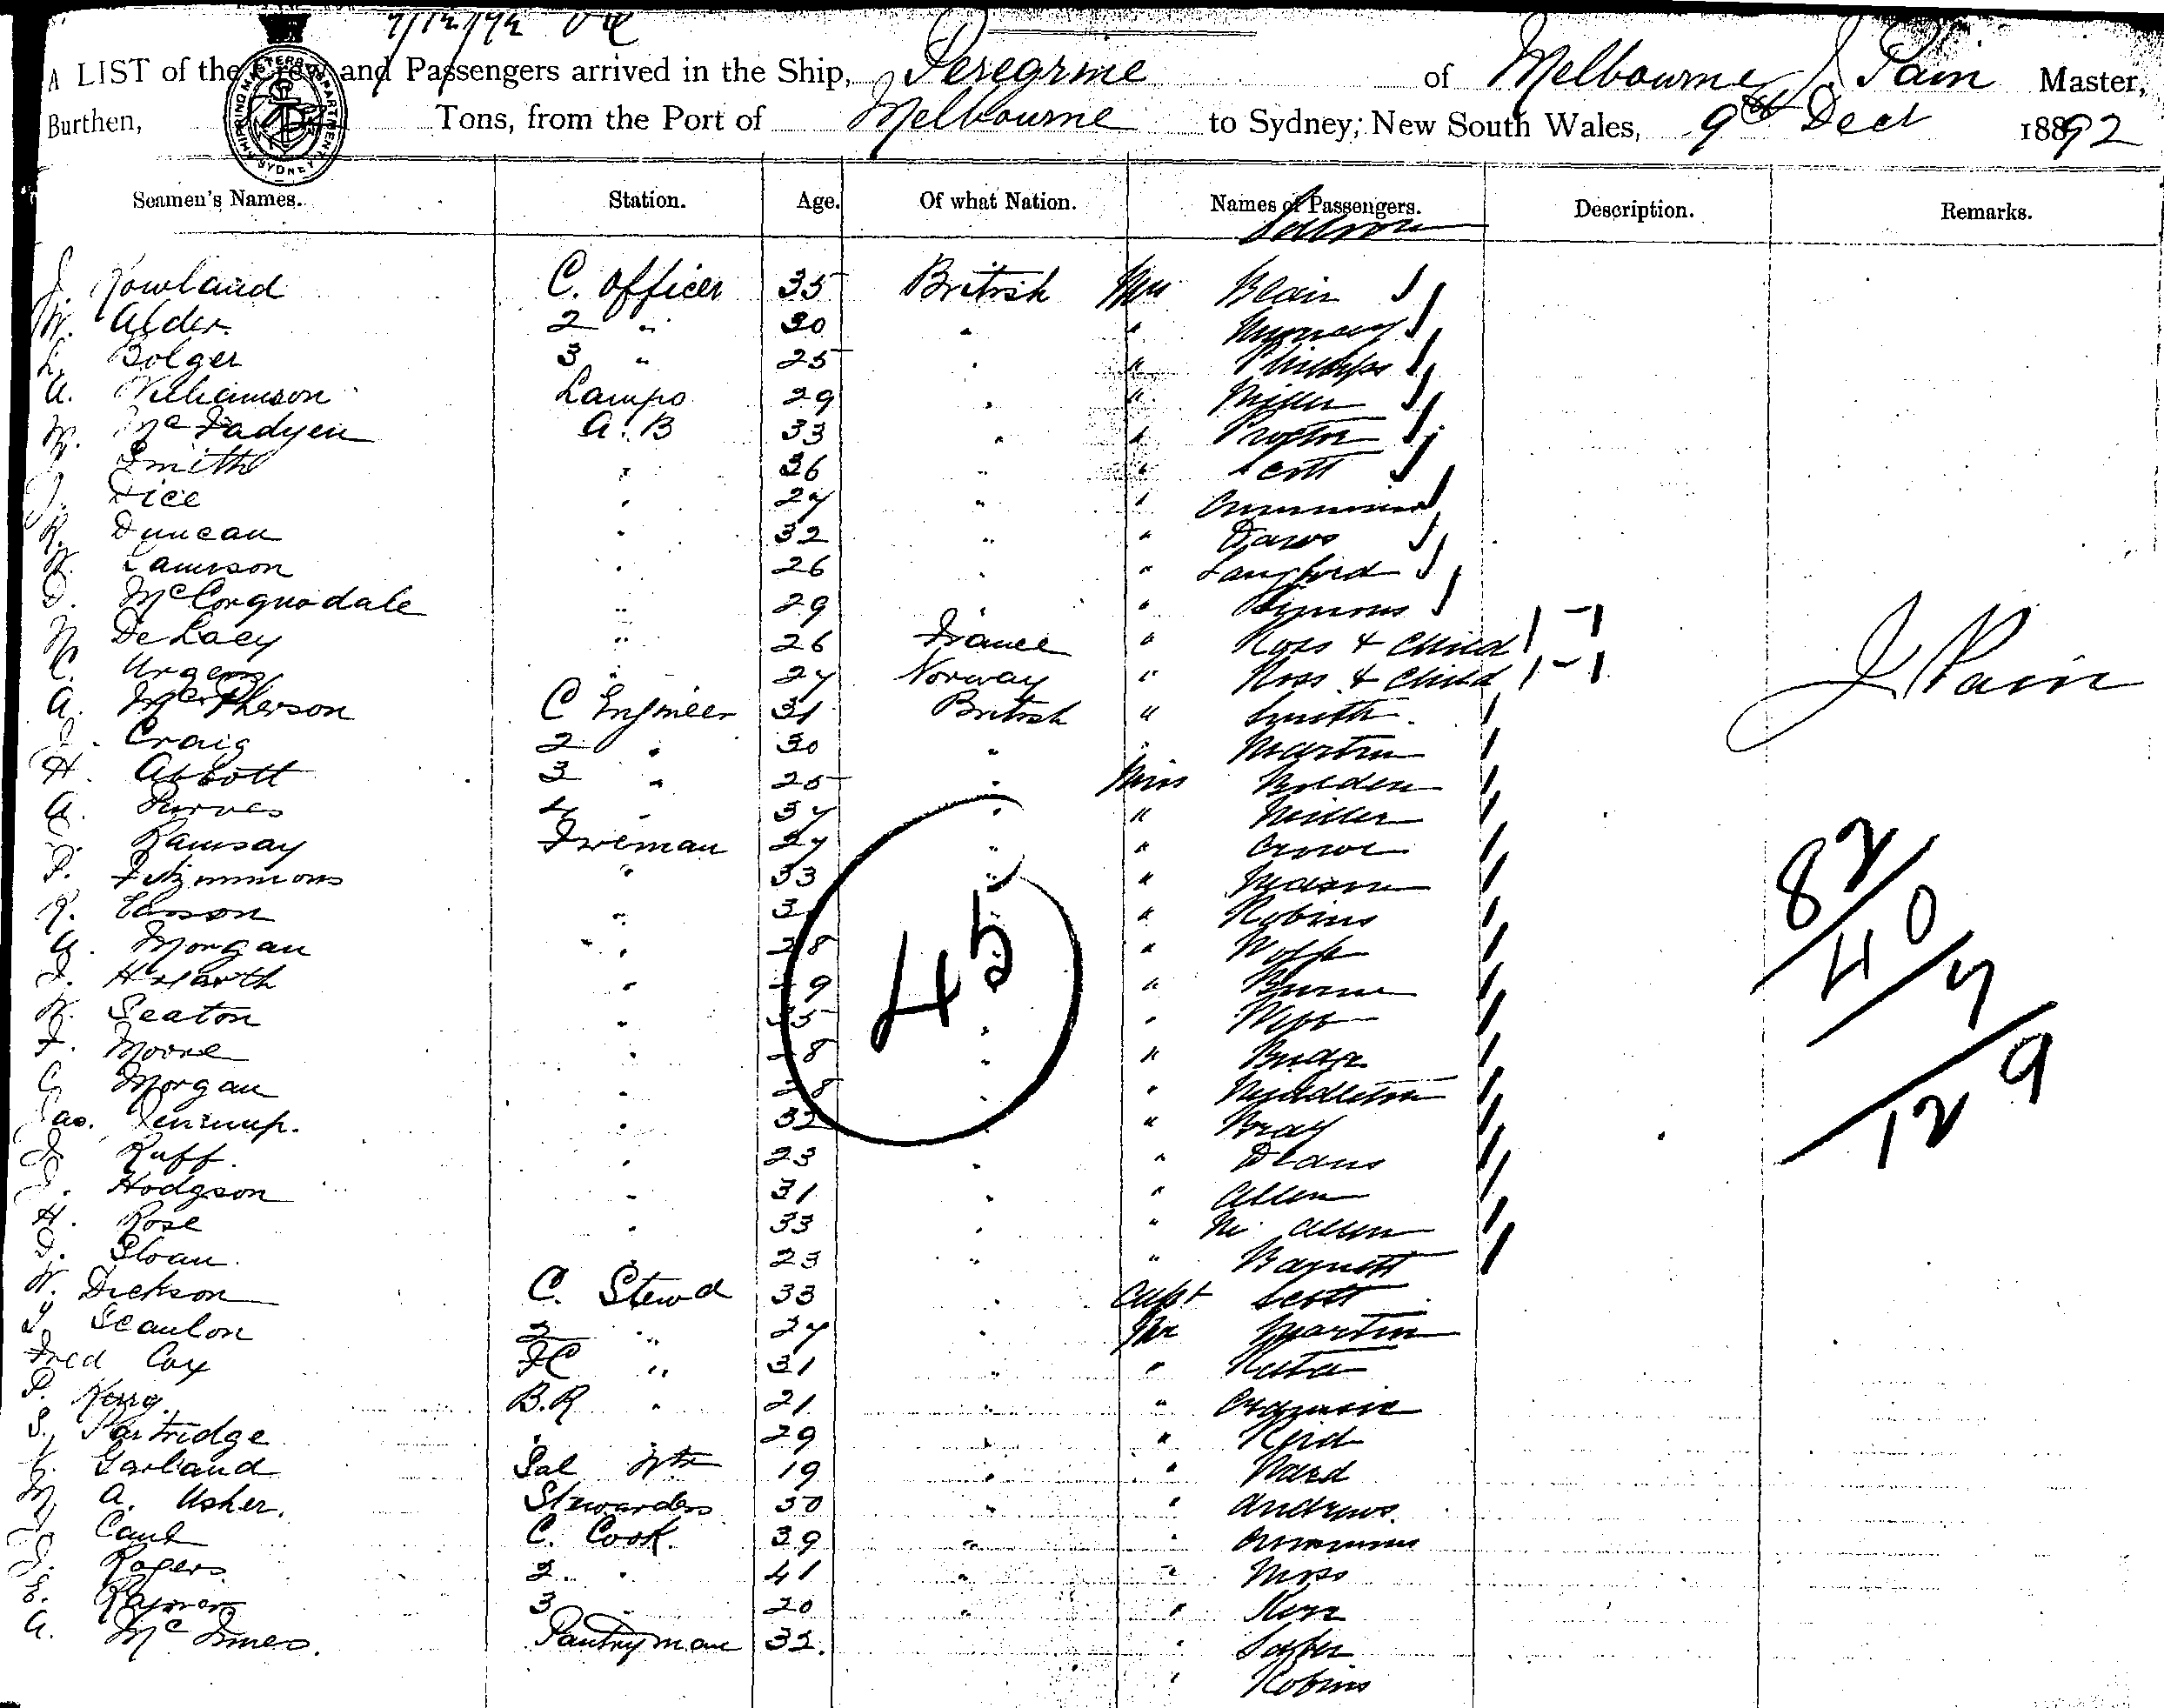 7/12/92
A LIST of the Crew and Passengers arrived in the Ship, Peregrine of Melbourne, J. Pain Master,
Burthen, Tons, from the Port of Melbourne to Sydney, New South Wales, 9th Dect 1892
SHIPPING MASTERS DEPARTMENT SYDNEY
Seamen's Names. Station. Age. Of what Nation. Names of Passengers. Description. Remarks.
Saloon
J. Rowland C. Officer 35 British Mrs Blair
W. Alder 2 " 30 " "
L. Bolger 3 " 25 " " Phillips
A. Williamson Lamps 29 " " Miller
W. McFadyen A.B 33 " " Proctor
J. Smith " 36 " " Scott
J. Dice " 27 " "
R. Duncan " 32 " " Daws
W. Lamson " 26 " " Langford
D. McCorquodale " 29 " " Simons
N. De Lacy " 26 France " Ross & Child
C. " 27 Norway " Ross & Child
A. McPherson C Engineer 31 British " Smith
J. Craig 2 " 30 " " Martin
H. Abbott 3 " 25 " Miss
A. Purves 4 37 " " Miller
Ramsay Fireman 27 " " Crowe
P. Fitzimmons " 33 " "
R. " 3 " Robins
A. Morgan " 28 " Wolfe
J. Howarth " 29 "
W. Seaton " 35 " Webb
F. Moore " 28 " " Budge
C. Morgan " 28 " " Middleton
Jas. " 32 " " Bray
J. Ruff. " 23 " " Deans
J. Hodgson " 31 " " Allen
H. Rose " 33 " " M. Allen
J. Sloan " 23 " " Barnett
W. Dickson C. Stewd 33 " Capt Scott
J Scanlon 2 " 27 " Mr Martin
Fred Cox FC " 31 " "
P. King. B.R " 21 " "
S. Partridge " " 29 " " Reid
Garland Sal 19 " " Ward
M. A. Usher. Stewardess 30 " " Andrews.
J. C. Cook. 39 " "
J. Rogers 2 " 41 " " Moss
E. Rayner 3 20 " " Kerr
A. McInnes. Pantryman 32. "
" Robins
45
J. Pain
82
40
7
129